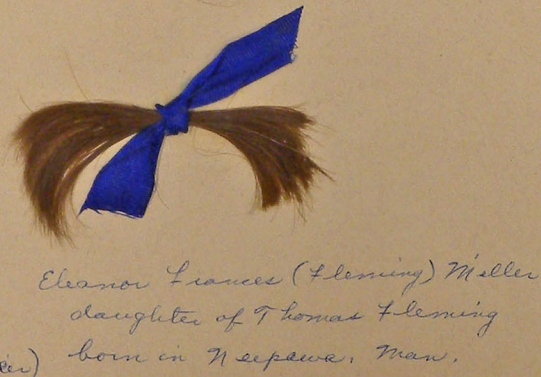 Eleanor Frances (Fleming) Miller
daughter of Thomas Fleming
born in Neepawa, Man.